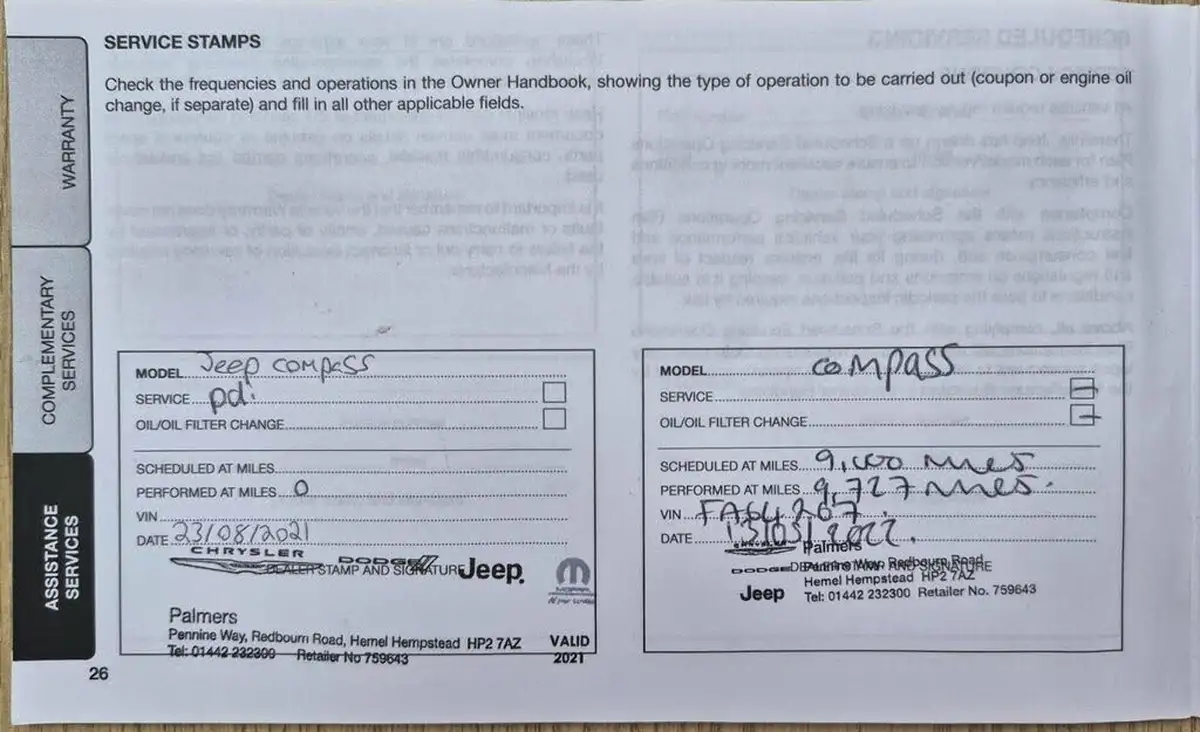 SERVICE STAMPS
Check the frequencies and operations in the Owner Handbook, showing the type of operation to be carried out (coupon or engine oil
change, if separate) and fill in all other applicable fields.
WARRANTY
COMPLEMENTARY
SERVICES
ASSISTANCE
SERVICES
MODEL Jeep compass
SERVICE pdi
OIL/OIL FILTER CHANGE
SCHEDULED AT MILES
PERFORMED AT MILES 0
VIN
DATE 23/08/2021
CHRYSLER
DODGE
DEALER STAMP AND SIGNATURE Jeep
Palmers
Pennine Way, Redbourn Road, Hemel Hempstead HP2 7AZ
Tel: 01442 232300 Retailer No 759643
VALID
2021
MODEL compass
SERVICE
OIL/OIL FILTER CHANGE
SCHEDULED AT MILES 9,000 miles
PERFORMED AT MILES 9,727 miles.
VIN
DATE
Palmers
DODGE DEALER STAMP AND SIGNATURE
Pennine Way, Redbourn Road
Hemel Hempstead HP2 7AZ
Jeep Tel: 01442 232300 Retailer No. 759643
26